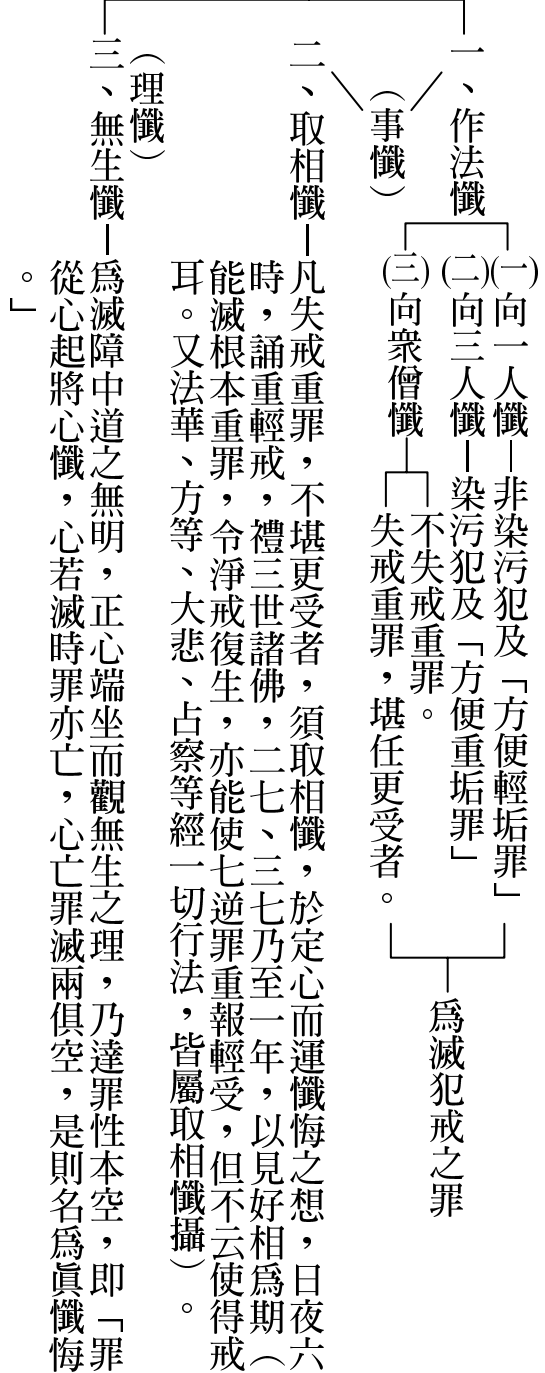 一、作法懺
(一)向一人懺
非染污犯及「方便輕垢罪」
(二)向三人懺
染污犯及「方便重垢罪」
(三)向衆僧懺
不失戒重罪。
失戒重罪，堪任更受者。
爲滅犯戒之罪
（事懺）
二、取相懺
凡失戒重罪，不堪更受者，須取相懺，於定心而運懺悔之想，日夜六
時，誦重輕戒，禮三世諸佛，二七、三七乃至一年，以見好相爲期（
能滅根本重罪，令淨戒復生，亦能使七逆罪重報輕受，但不云使得戒
耳。又法華、方等、大悲、占察等經一切行法，皆屬取相懺攝）。
（理懺）
三、無生懺
爲滅障中道之無明，正心端坐而觀無生之理，乃達罪性本空，即「罪
從心起將心懺，心若滅時罪亦亡，心亡罪滅兩俱空，是則名爲眞懺悔
。」